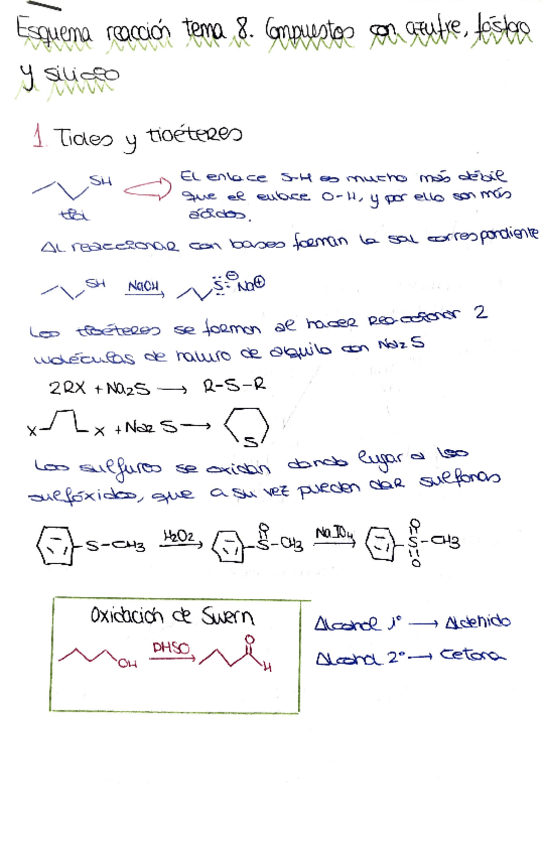 Esquema reacción tema 8. Compuestos con azufre, fósforo
y silicio
1 Tioles y tioéteres
SH
El enlace S-H es mucho más débil
que el enlace O-H, y por ello son más
ácidos.
tiol
Al reaccionar con bases forman la sal correspondiente
SH NaOH S Na
Los tioéteres se forman al hacer reaccionar 2
moléculas de haluro de alquilo con Na2S
2RX + Na2S → R-S-R
X X + Na2S → S
Los sulfuros se oxidan dando lugar a los
sulfóxidos, que a su vez pueden dar sulfonas
S-CH3 H2O2 O S-CH3 NaIO4 O S-CH3 O
Oxidación de Swern
OH DMSO O H
Alcohol 1º → Aldehido
Alcohol 2º → Cetona